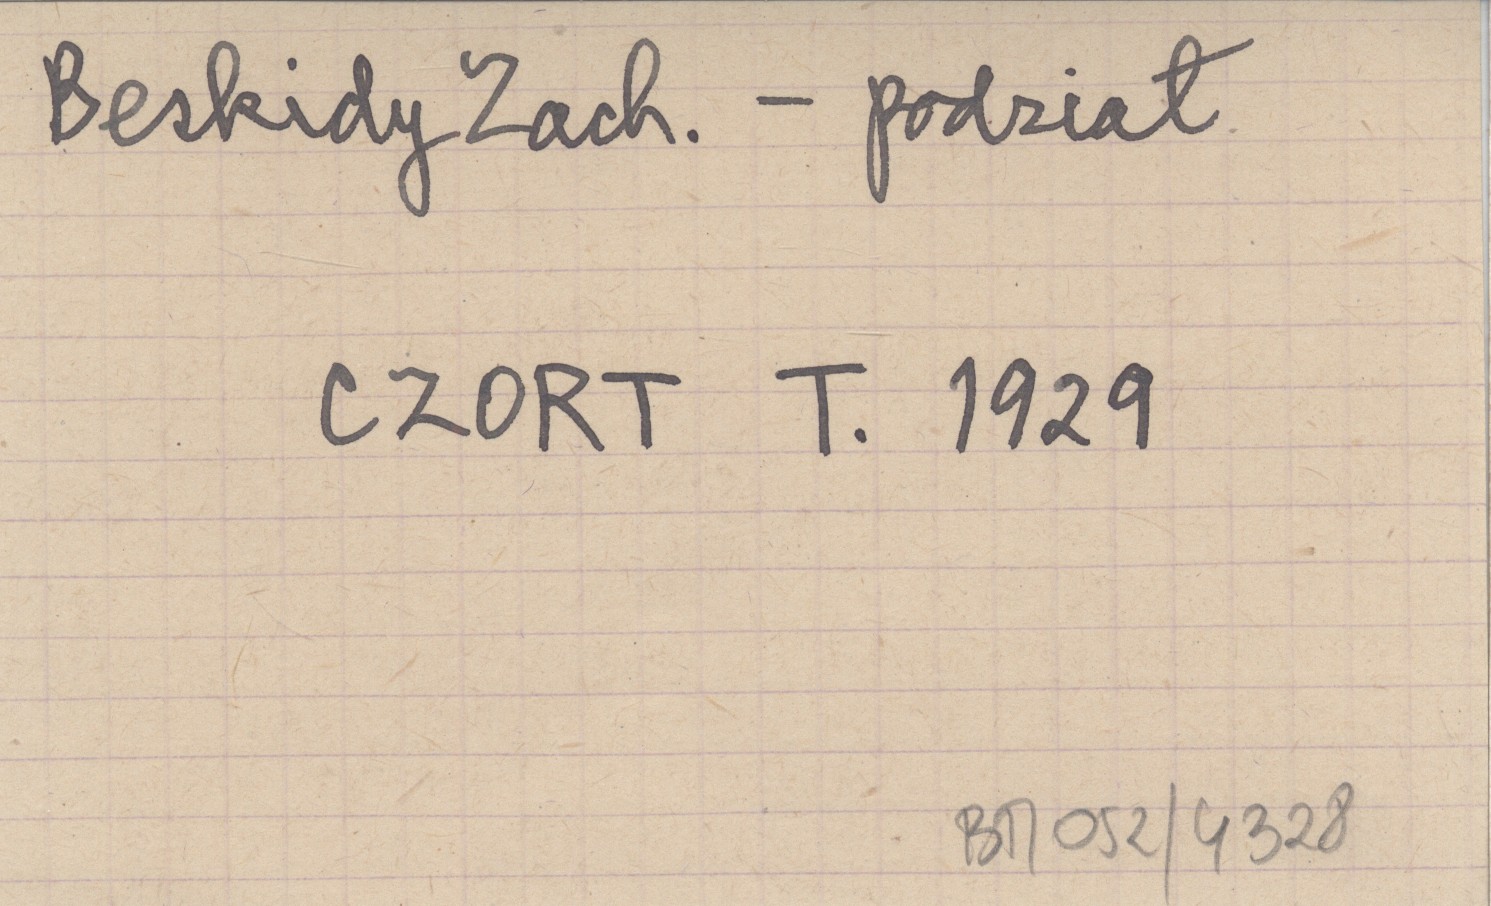 Beskidy Zach. – podział
CZORT T. 1929
052/4328